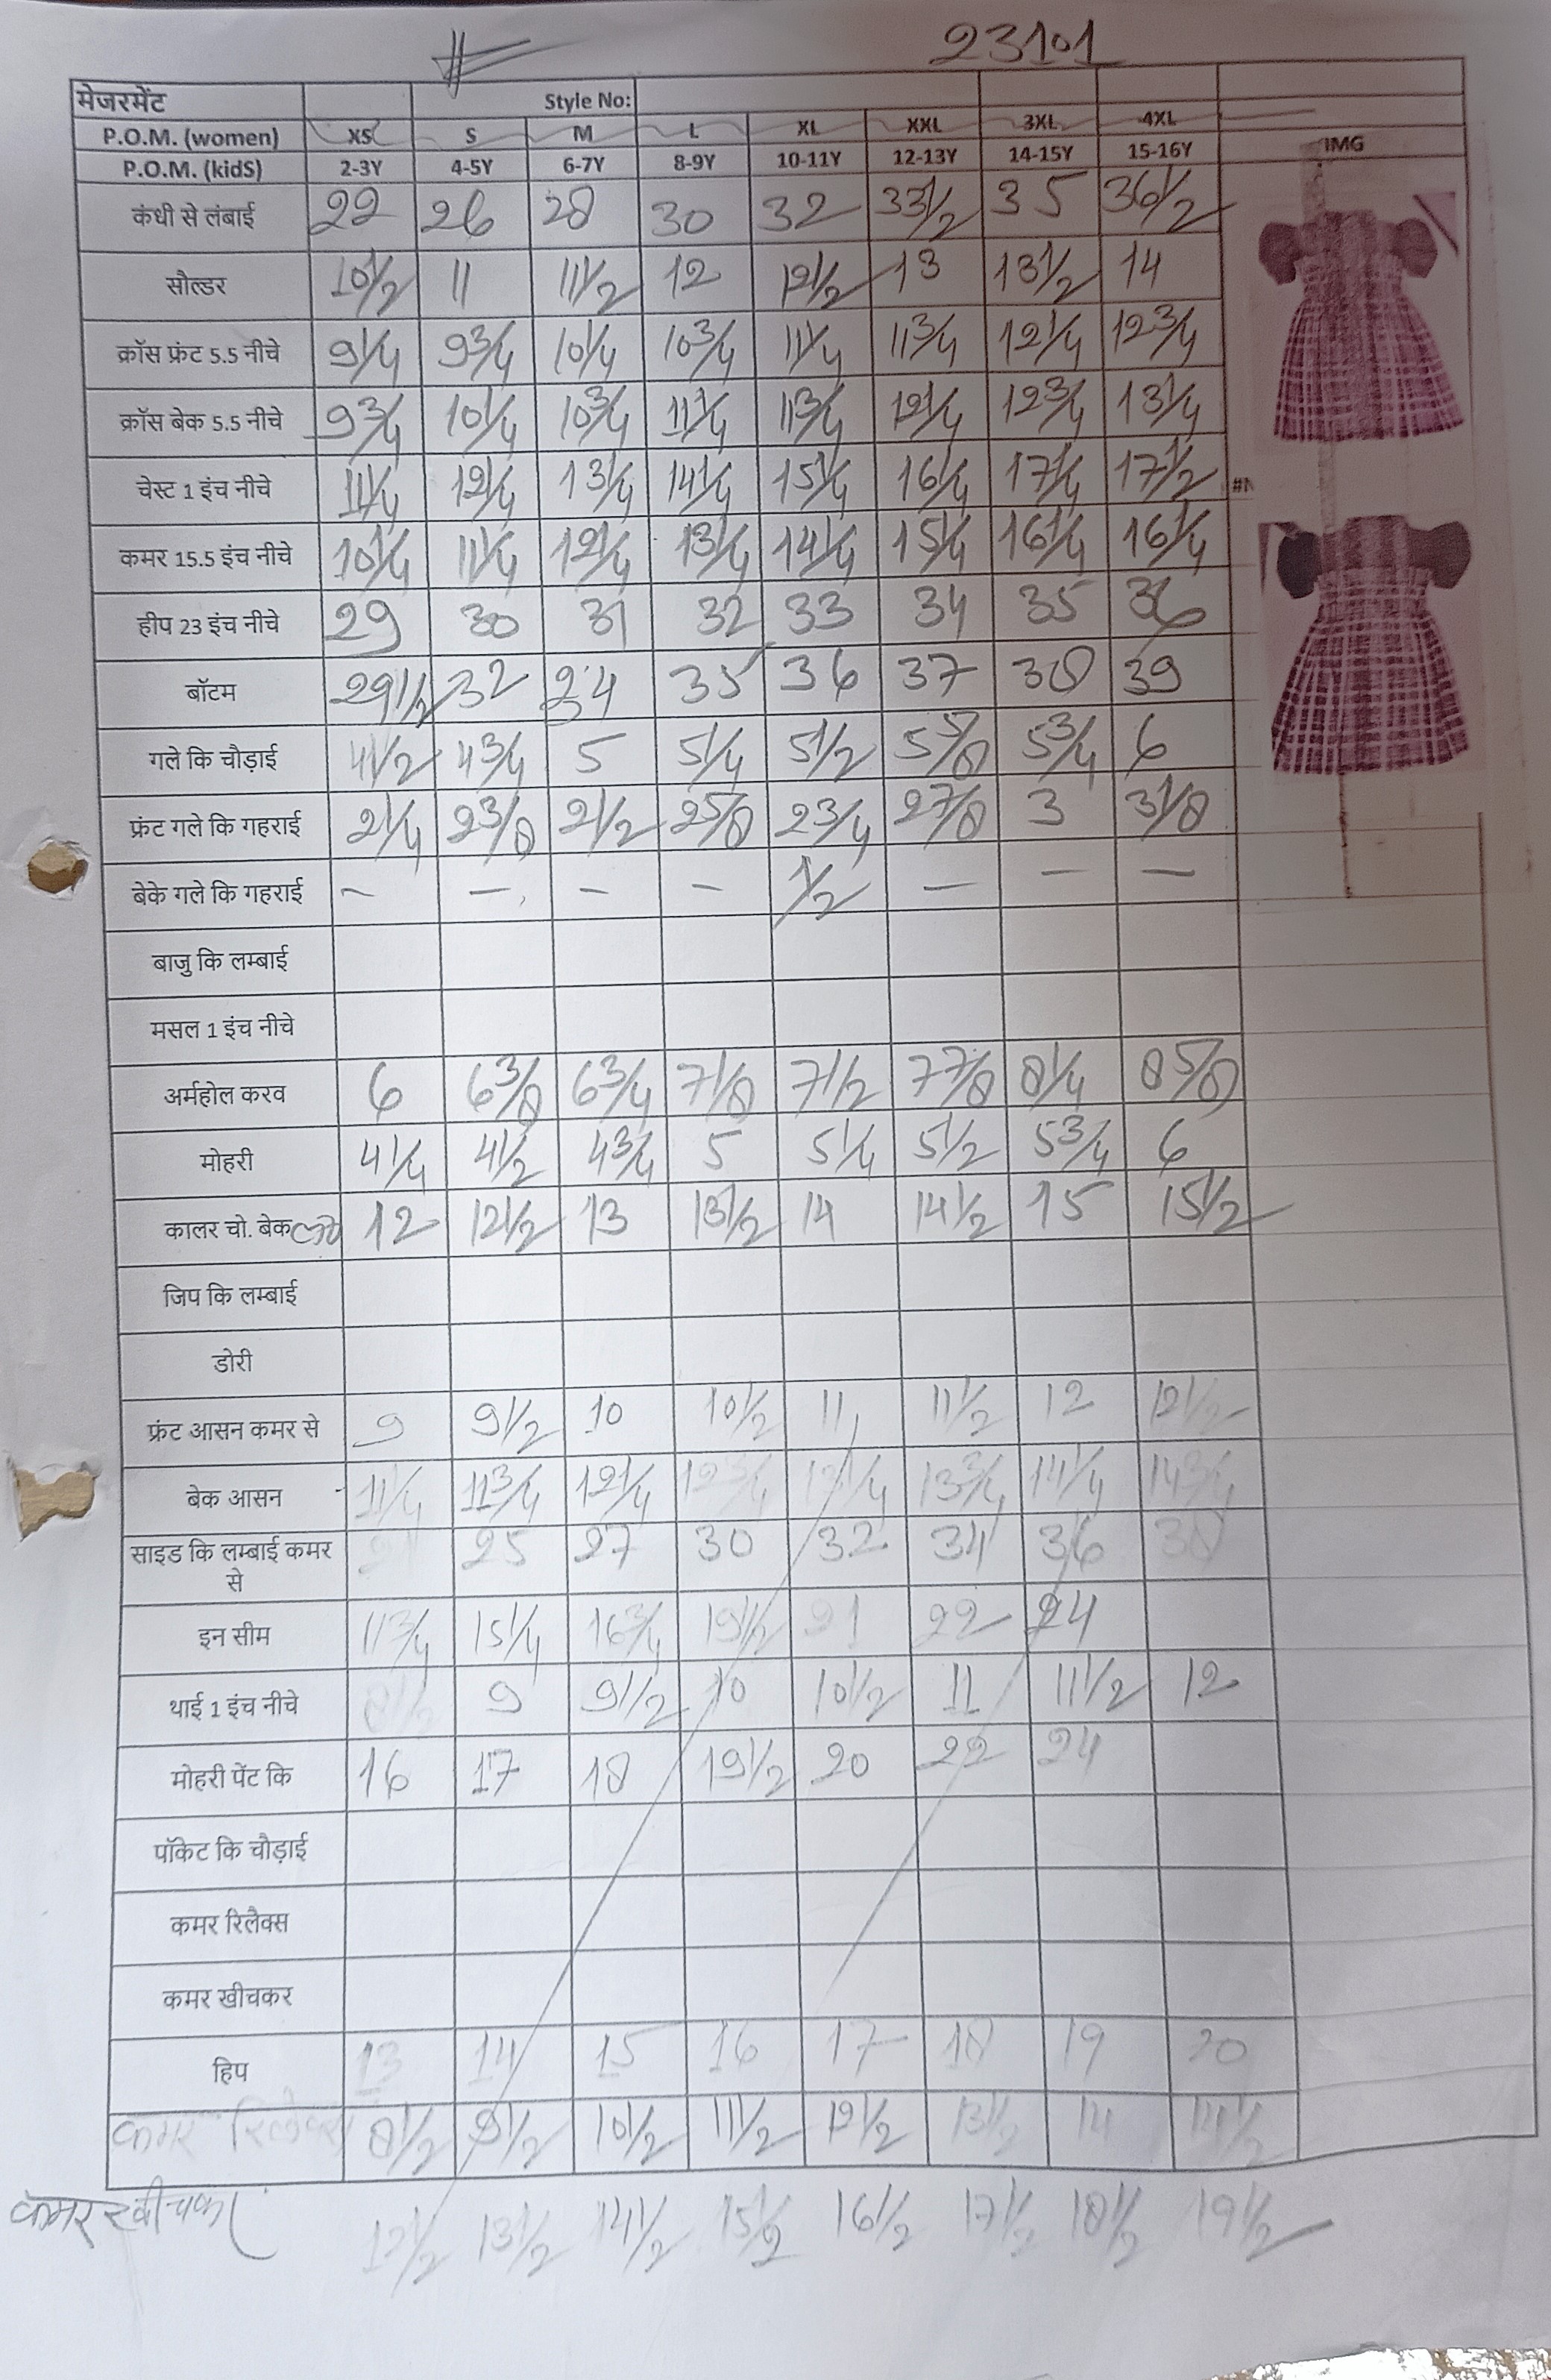 23101
मेजरमेंट Style No:
P.O.M. (women) XS S M L XL XXL 3XL 4XL IMG
P.O.M. (kidS) 2-3Y 4-5Y 6-7Y 8-9Y 10-11Y 12-13Y 14-15Y 15-16Y
कंधी से लंबाई 22 26 28 30 32 33 1/2 35 36 1/2
सौल्डर 10 1/2 11 11 1/2 12 12 1/2 13 13 1/2 14
क्रॉस फ्रंट 5.5 नीचे 9 1/4 9 3/4 10 1/4 10 3/4 11 1/4 11 3/4 12 1/4 12 3/4
क्रॉस बेक 5.5 नीचे 9 3/4 10 1/4 10 3/4 11 1/4 11 3/4 12 1/4 12 3/4 13 1/4
चेस्ट 1 इंच नीचे 11 1/4 12 1/4 13 1/4 14 1/4 15 1/4 16 1/4 17 1/4 17 1/2
कमर 15.5 इंच नीचे 10 1/4 11 1/4 12 1/4 13 1/4 14 1/4 15 1/4 16 1/4 16 1/4
हीप 23 इंच नीचे 29 30 31 32 33 34 35 36
बॉटम 29 1/2 32 34 35 36 37 38 39
गले कि चौड़ाई 4 1/2 4 3/4 5 5 1/4 5 1/2 5 5/8 5 3/4 6
फ्रंट गले कि गहराई 2 1/4 2 3/8 2 1/2 2 5/8 2 3/4 2 7/8 3 3 1/8
बेके गले कि गहराई — — — — 1/2 — — —
बाजु कि लम्बाई
मसल 1 इंच नीचे
अर्महोल करव 6 6 3/8 6 3/4 7 1/8 7 1/2 7 7/8 8 1/4 8 5/8
मोहरी 4 1/4 4 1/2 4 3/4 5 5 1/4 5 1/2 5 3/4 6
कालर चो. बेक 12 12 1/2 13 13 1/2 14 14 1/2 15 15 1/2
जिप कि लम्बाई
डोरी
फ्रंट आसन कमर से 9 9 1/2 10 10 1/2 11 11 1/2 12 12 1/2
बेक आसन 11 1/4 11 3/4 12 1/4 12 3/4 13 1/4 13 3/4 14 1/4 14 3/4
साइड कि लम्बाई कमर 25 27 30 32 34 36 38
से
इन सीम 11 3/4 15 1/4 16 3/4 19 1/2 21 22 24
थाई 1 इंच नीचे 8 1/2 9 9 1/2 10 10 1/2 11 11 1/2 12
मोहरी पेंट कि 16 17 18 19 1/2 20 22 24
पॉकेट कि चौड़ाई
कमर रिलैक्स
कमर खीचकर
हिप 13 14 15 16 17 18 19 20
कमर रिलेक्स 8 1/2 9 1/2 10 1/2 11 1/2 12 1/2 13 1/2 14 14 1/2
कमर खीचकर 12 1/2 13 1/2 14 1/2 15 1/2 16 1/2 17 1/2 18 1/2 19 1/2